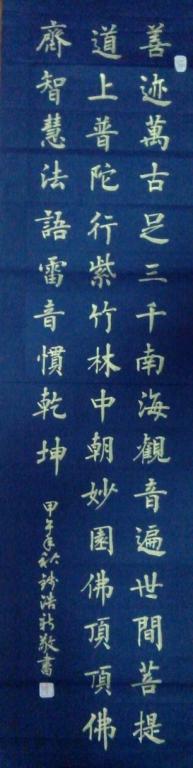 善迹萬古足三千南海觀音遍世間菩提
道上普陀行紫竹林中朝妙園佛頂頂佛
齋智慧法語雷音慣乾坤
甲午年 浩 敬書